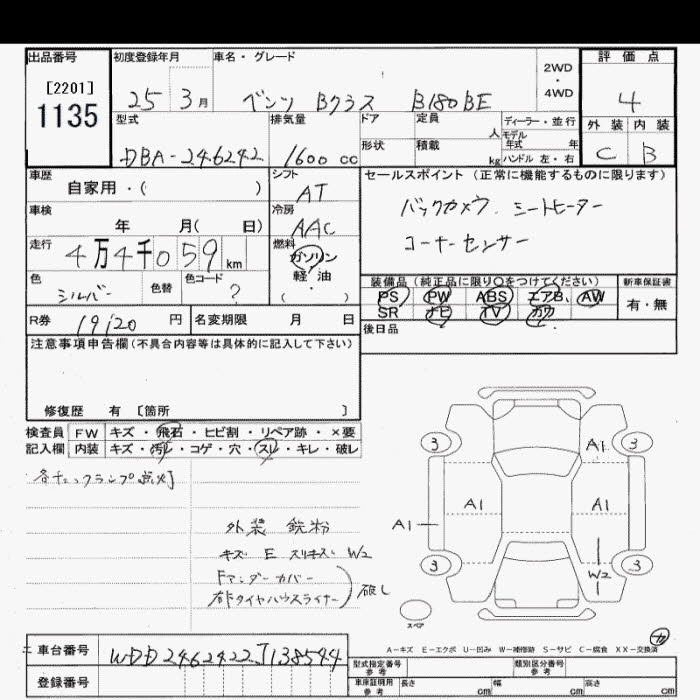 出品番号 初度登録年月 車名・グレード 評価点
[2201]
1135
25 3月 ベンツ Bクラス B180BE 2WD・4WD 4
型式 排気量 ドア 定員 人 ディーラー・並行 外装 内装
モデル年式 年
DBA-246242 1600cc 形状 積載 kg ハンドル 左・右 C B
車歴 シフト セールスポイント(正常に機能するものに限ります)
自家用・( ) AT
バックカメラ シートヒーター
車検 冷房
年 月( 日) AAC コーナーセンサー
走行 燃料
4万4千059km ガソリン
軽油
( )
装備品(純正品に限り○をつけてください) 新車保証書
色 色替 色コード
シルバー ?
PS PW ABS エアB. AW 有・無
SR ナビ TV カワ
R券 19120円 名変期限 月 日 後日品
注意事項申告欄(不具合内容等は具体的に記入して下さい)
修復歴 有 [箇所 ]
検査員 FW キズ・飛石・ヒビ割・リペア跡・×要
記入欄 内装 キズ・汚レ・コゲ・穴・スレ・キレ・破レ
各チェックランプ点灯
外装 鉄粉
キズ E スリキズ W2
Fアンダーカバー
右Fタイヤハウスライナー
破レ
3 A1 3
A1 A1
A1
3 W2 3
スペア
カ
A-キズ E-エクボ U-凹み W-補修跡 S-サビ C-腐食 XX-交換済
車台番号 WDD2462422J138544
登録番号
型式指定番号 参考 類別区分番号 参考
車庫証明用 参考 長さ cm 幅 cm 高さ cm